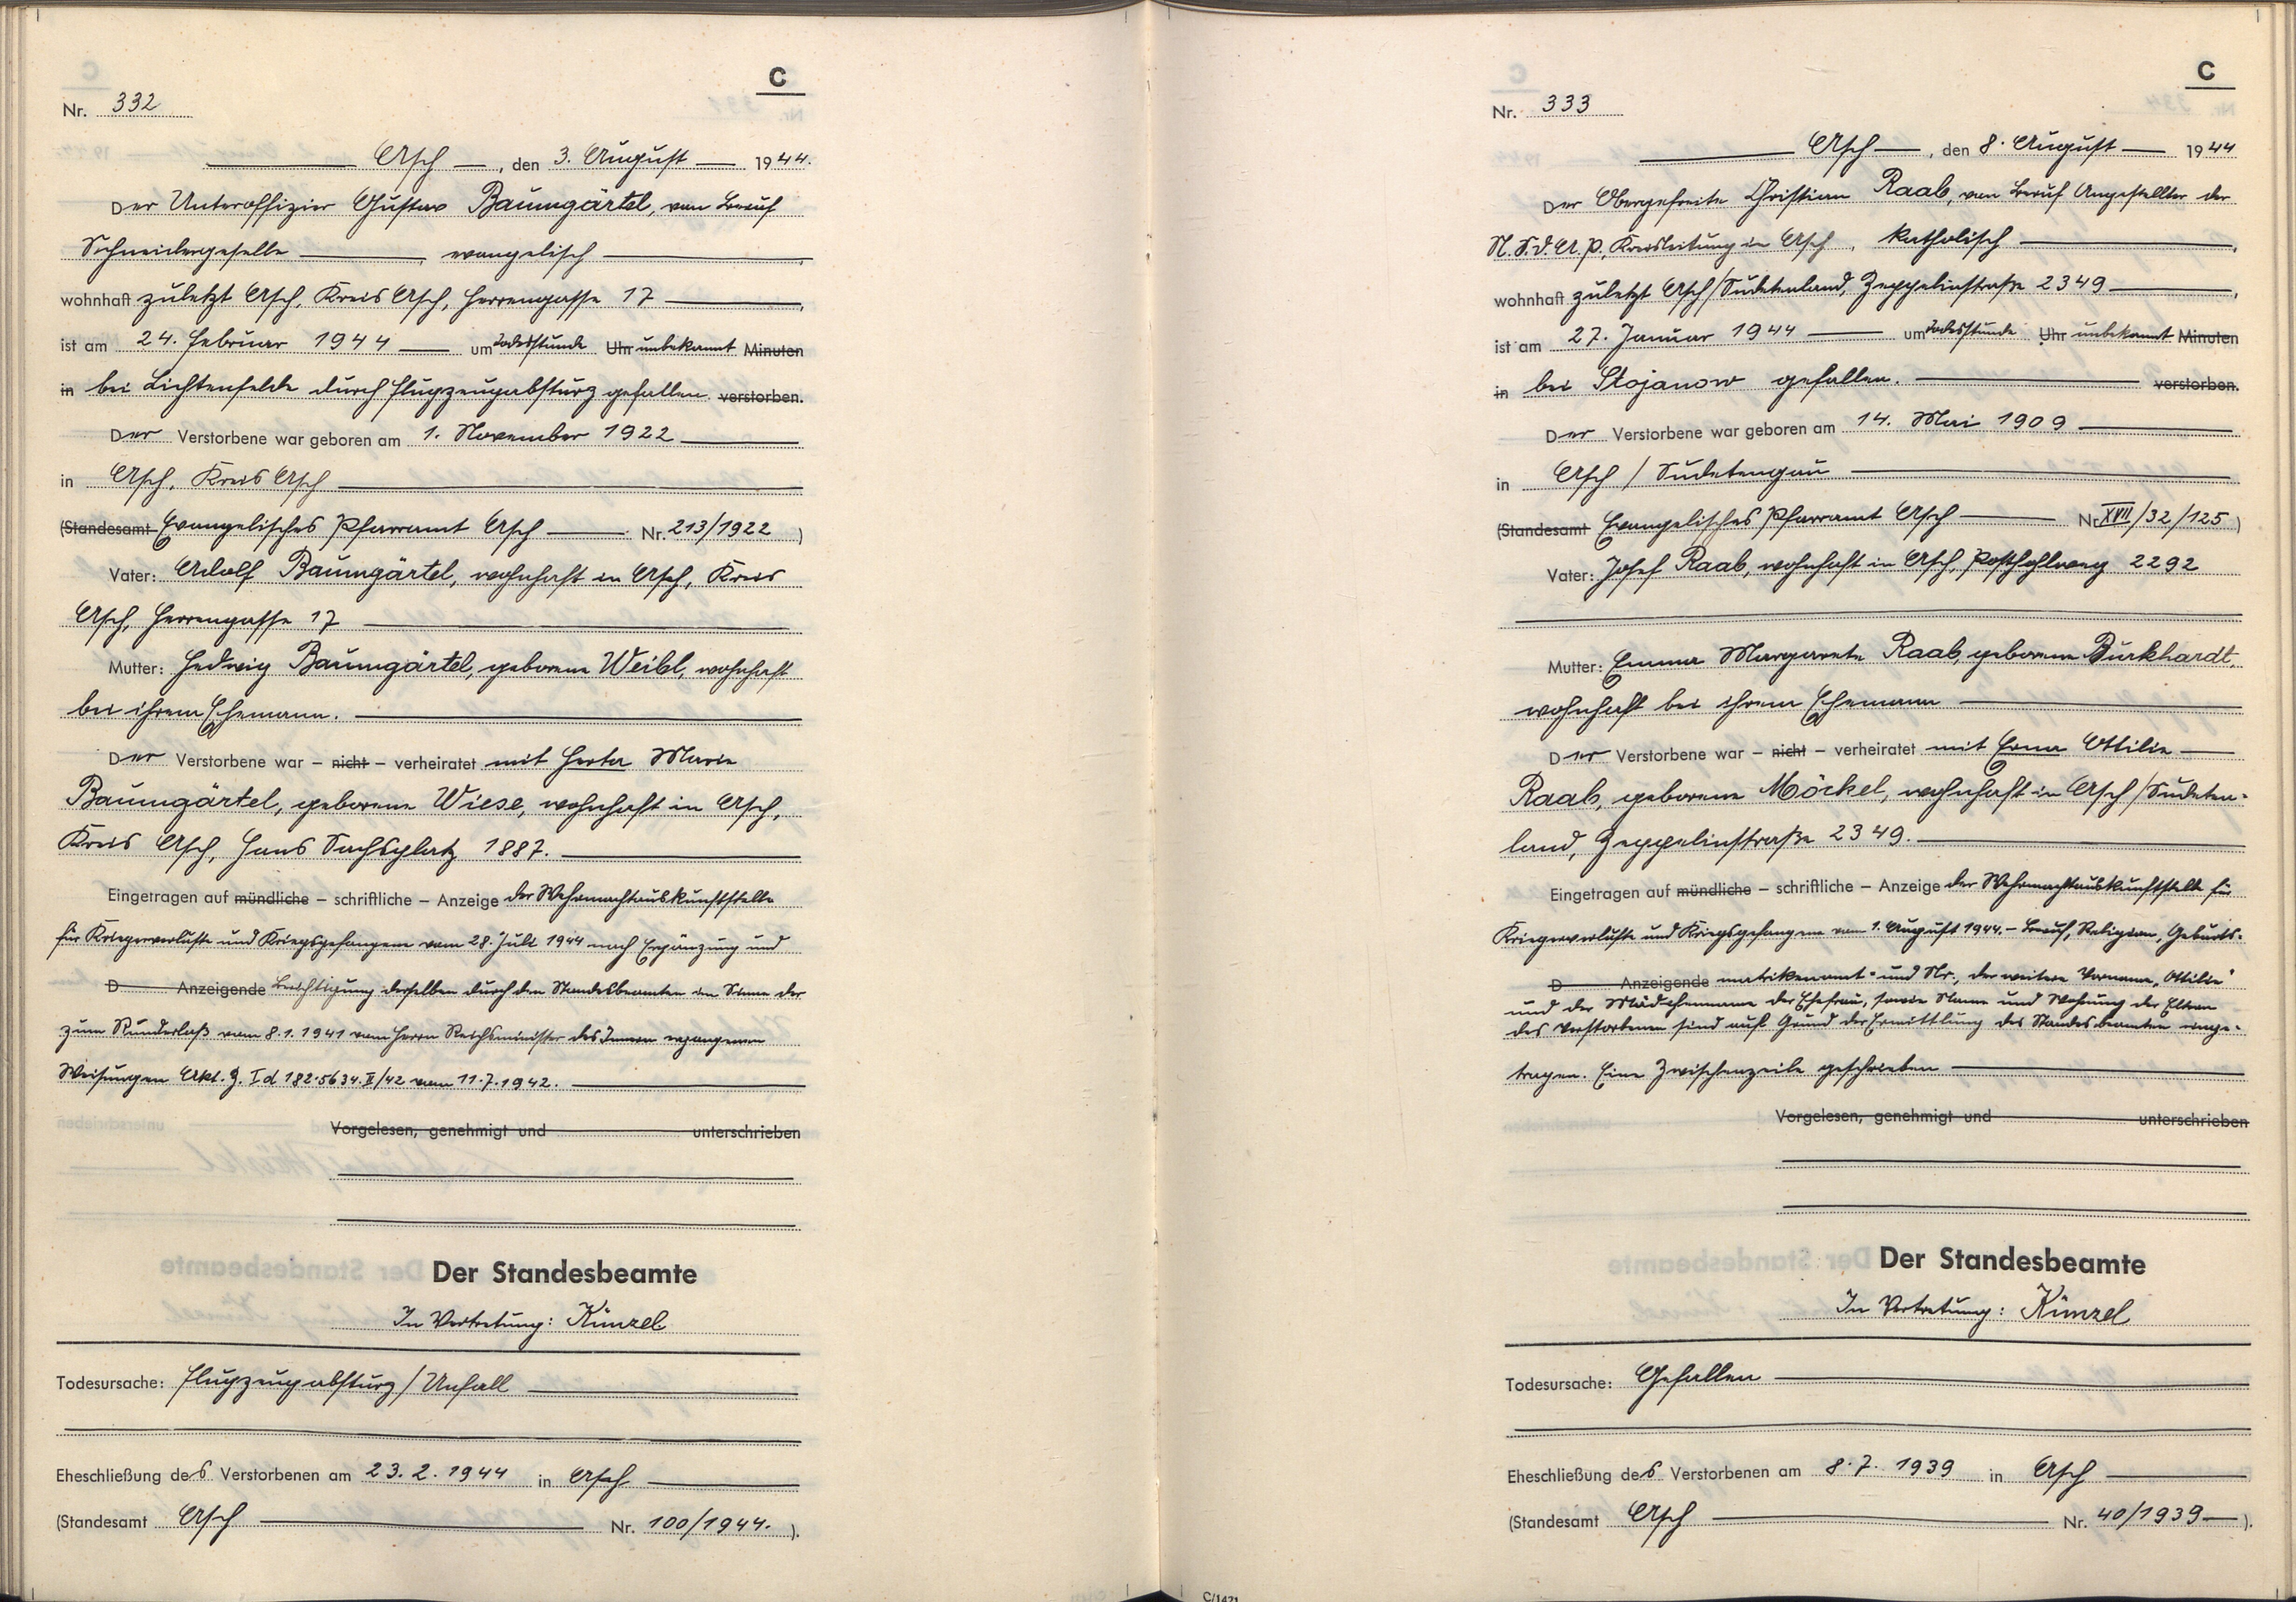 C
Nr. 332
Asch, den 3. August 1944.
Der Unteroffizier Gustav Baumgärtel, von Beruf
Schneidergeselle, evangelisch,
wohnhaft zuletzt Asch, Kreis Asch, Herrengasse 17,
ist am 24. Februar 1944 um Todesstunde Uhr unbekannt Minuten
in bei Lichtenfelde durch Flugzeugabsturz gefallen. verstorben.
Der Verstorbene war geboren am 1. November 1922
in Asch, Kreis Asch
(Standesamt Evangelisches Pfarramt Asch Nr. 213/1922)
Vater: Adolf Baumgärtel, wohnhaft in Asch, Kreis
Asch, Herrengasse 17
Mutter: Hedwig Baumgärtel, geborene Weibl, wohnhaft
bei ihrem Ehemann.
Der Verstorbene war – nicht – verheiratet mit Herta Marie
Baumgärtel, geborene Wiese, wohnhaft in Asch,
Kreis Asch, Hans Sachsplatz 1887.
Eingetragen auf mündliche – schriftliche – Anzeige der Wehrmachtauskunftstelle
für Kriegerverluste und Kriegsgefangene vom 28. Juli 1944 nach Ergänzung und
D Anzeigende Berichtigung derselben durch den Standesbeamten im Sinne der
zum Runderlaß vom 8.1.1941 vom Herrn Reichsminister des Innern ergangenen
Weisungen Akt. Z. Id 182.5634.II/42 vom 11.7.1942.
Vorgelesen, genehmigt und unterschrieben
Der Standesbeamte
In Vertretung: Künzel
Todesursache: Flugzeugabsturz/Unfall
Eheschließung des Verstorbenen am 23.2.1944 in Asch
(Standesamt Asch Nr. 100/1944.).
C
Nr. 333
Asch, den 8. August 1944
Der Obergefreite Christian Raab, von Beruf Angestellter der
N.S.d.A.P., Kreisleitung in Asch, katholisch,
wohnhaft zuletzt Asch/Sudetenland, Zeppelinstraße 2349,
ist am 27. Januar 1944 um Todesstunde Uhr unbekannt Minuten
in bei Stojanow gefallen. verstorben.
Der Verstorbene war geboren am 14. Mai 1909
in Asch / Sudetengau
(Standesamt Evangelisches Pfarramt Asch Nr. XVII/32/125)
Vater: Josef Raab, wohnhaft in Asch, Posthohlweg 2292
Mutter: Emma Margarete Raab, geborene Burkhardt,
wohnhaft bei ihrem Ehemann
Der Verstorbene war – nicht – verheiratet mit Erna Ottilie
Raab, geborene Möckel, wohnhaft in Asch/Sudeten-
land, Zeppelinstraße 2349.
Eingetragen auf mündliche – schriftliche – Anzeige der Wehrmachtauskunftstelle für
Kriegerverluste und Kriegsgefangene vom 1. August 1944. – Beruf, Religion, Geburts-
D Anzeigende matrikenamt- und Nr., der weitere Vorname „Ottilie"
und der Mädchenname der Ehefrau, sowie Name und Wohnung der Eltern
des Verstorbenen sind auf Grund der Ermittlung des Standesbeamten einge-
tragen. Eine Zwischenzeile geschrieben
Vorgelesen, genehmigt und unterschrieben
Der Standesbeamte
In Vertretung: Künzel
Todesursache: Gefallen
Eheschließung des Verstorbenen am 8.7.1939 in Asch
(Standesamt Asch Nr. 40/1939).
C/1421